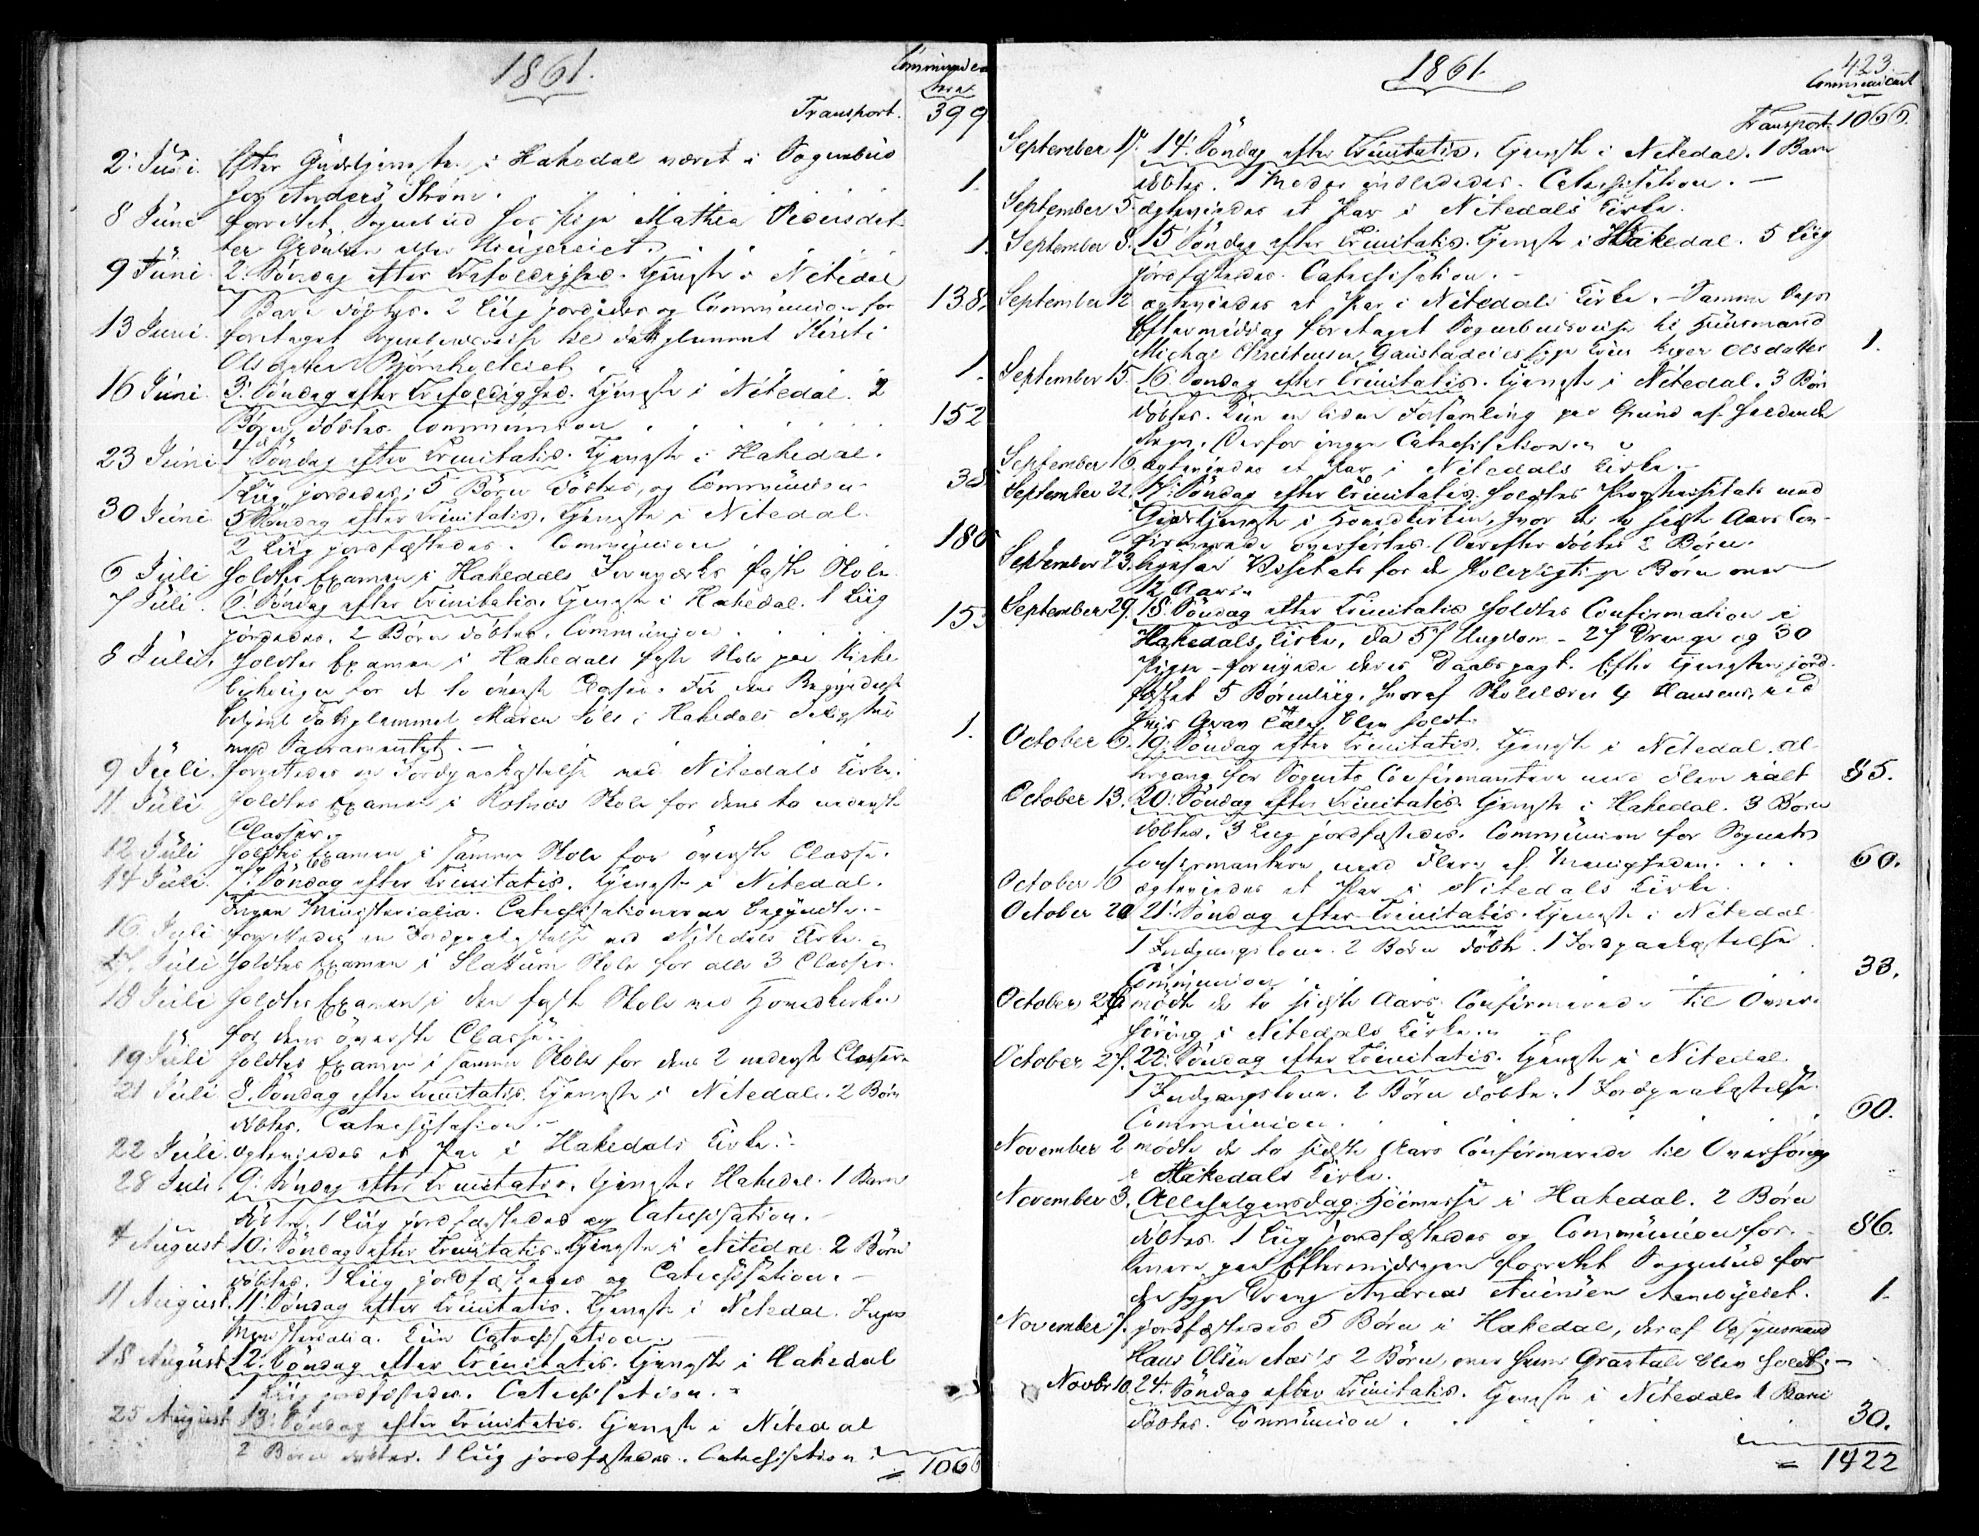 1861.
Communican
tera
Transport. 399
2. Juni. Efter Gudstjenesten i Hakedal været i Sognebud
for Anders Strøm. 1.
8 Juni forrettet Sognebud hos Pige Mathea Pedersdat-
ter
1.
9 Juni 2. Søndag efter Trefoldighed. Tjeneste i Nitedal
1 Barn döbtes. 2 Liig jordedes og Communion for 138.
13 Juni. foretaget Kirsti
Olsdatter Bjørnholteiet 1.
16 Juni. 3. Söndag efter Trefoldighed. Tjeneste i Nitedal. 2
Börn döbtes. Communion 152
23 Juni 4. Söndag efter Trinitatis. Tjeneste i Hakedal.
1 Liig jordedes, 5 Börn döbtes, og Communion 38
30 Juni 5 Söndag efter Trinitatis. Tjeneste i Nitedal.
2 Liig jordfæstedes. Communion 180
6 Juli holdtes Examen i Hakedals Jernværks faste Skole
7 Juli. 6. Söndag efter Trinitatis. Tjeneste i Hakedal. 1 Liig
jordedes. 2 Börn döbtes. Communion 153
8 Juli. holdtes Examen i Hakedals faste Skole paa Kirke
for de to överste Classer. Før dens Begyndelse
betjent Maren i Hakedals
med Sacramentet. — 1.
9 Juli. forrettedes en Jordpaakastelse ved Nitedals Kirke.
11 Juli holdtes Examen i Rotnæs Skole for dens to nederste
Classer.
12 Juli holdtes Examen i samme Skole for överste Classe.
14 Juli. 7. Söndag efter Trinitatis. Tjeneste i Nitedal.
Ingen Ministerialia. Catechisationerne begyndte. -
16. Juli forrettedes en Jordpaakastelse ved Nitedals Kirke.
17. Juli holdtes Examen i Slattum Skole for alle 3 Classer.
18 Juli holdtes Examen i den faste Skole ved Hovedkirken
for dens överste Classe.
19 Juli holdtes Examen i samme Skole for dens 2 nederste Classer
21 Juli 8. Söndag efter Trinitatis. Tjeneste i Nitedal. 2 Börn
döbtes. Catechisation. -
22 Juli. ægteviedes et Par i Hakedals Kirke.
28 Juli. 9. Söndag efter Trinitatis. Tjeneste Hakedal. 1 Barn
döbtes. 1 Liig jordfæstedes og Catechisation. -
4 August 10. Söndag efter Trinitatis. Tjeneste i Nitedal. 2 Börn
döbtes. 1 Liig jordfæstedes og Catechisation. -
11 August. 11. Söndag efter Trinitatis. Tjeneste i Nitedal. Ingen
Ministerialia. Kun Catechisation. -
18 August 12. Söndag efter Trinitatis. Tjeneste i Hakedal
1 Liig jordfæstedes. Catechisation. -
25 August 13. Söndag efter Trinitatis. Tjeneste i Nitedal
2 Börn döbtes. 1 Liig jordfæstedes. Catechisation.
= 1066
1861.
423.
Communicant
Transport. 1066.
September 1. 14. Söndag efter Trinitatis. Tjeneste i Nitedal. 1 Barn
döbtes. 1 Moder indlededes. Catechisation. —
September 5. ægteviedes et Par i Nitedals Kirke.
September 8. 15 Söndag efter Trinitatis. Tjeneste i Hakedal. 5 Liig
jordfæstedes. Catechisation. -
September 12 ægteviedes et Par i Nitedals Kirke. - Samme Dags
Eftermiddag foretaget til Huusmand
Christensen Gaustadeies syge Kone Inger Olsdatter 1.
September 15. 16. Søndag efter Trinitatis. Tjeneste i Nitedal. 3 Börn
döbtes. Kun en liden Forsamling paa Grund af heldende
Regn. Derfor ingen Catechisation.
September 16. ægteviedes et Par i Nitedals Kirke.
September 22. 17. Söndag efter Trinitatis. holdtes Provstevisitats med
Gudstjeneste i Hovedkirken, hvor de to sidste Aars Con-
firmerede overhörtes. Derefter döbtes 2 Börn.
September 23. Visitats for de skolepligtige Börn over
12 Aar.
September 29. 18. Söndag efter Trinitatis holdtes Confirmation i
Hakedals Kirke, da 57 Ungdom - 27 Drenge og 30
Piger - fornyede deres Daabspagt. Efter Tjenesten jord-
fæstet 5 Börneliig, hvoraf Skolelærer G Hansens, ved
hvis Grav Tale blev holdt.
October 6. 19. Söndag efter Trinitatis. Tjeneste i Nitedal. Al-
tergang for Sognets Confirmantere med flere ialt 85.
October 13. 20. Söndag efter Trinitatis. Tjeneste i Hakedal. 3 Börn
döbtes. 3 Liig jordfæstedes. Communion for Sognets
Confirmantere med flere af Menigheden. 60.
October 16 ægteviedes et Par i Nitedals Kirke.
October 20 21. Söndag efter Trinitatis. Tjeneste i Nitedal
1 Indgangskone. 2 Börn döbte. 1 Jordpaakastelse.
Communion 33.
October 26 mödte de to sidste Aars Confirmerede til Over-
höring i Nitedals Kirke.
October 27. 22. Söndag efter Trinitatis. Tjeneste i Nitedal.
1 Indgangskone. 2 Börn döbte. 1 Jordpaakastelse.
Communion. 60.
November 2 mödte de to sidste Aars Confirmerede til Overhöring
i Hakedals Kirke.
November 3. Allehelgensdag. Höimesse i Hakedal. 2 Börn
döbtes. 1 Liig jordfæstedes og Communion for 86.
Senere paa Eftermiddagen forrettet Sognebud for
den syge Dreng Andreas 1.
November 7. jordfæstedes 5 Börn i Hakedal, deraf Opsynsmand
Hans Olsen Aas's 2 Börn, over hvem Gravtale blev holdt. —
Novbr 10. 24. Söndag efter Trinitatis. Tjeneste i Nitedal. 1 Barn
döbtes. Communion. 30.
= 1422